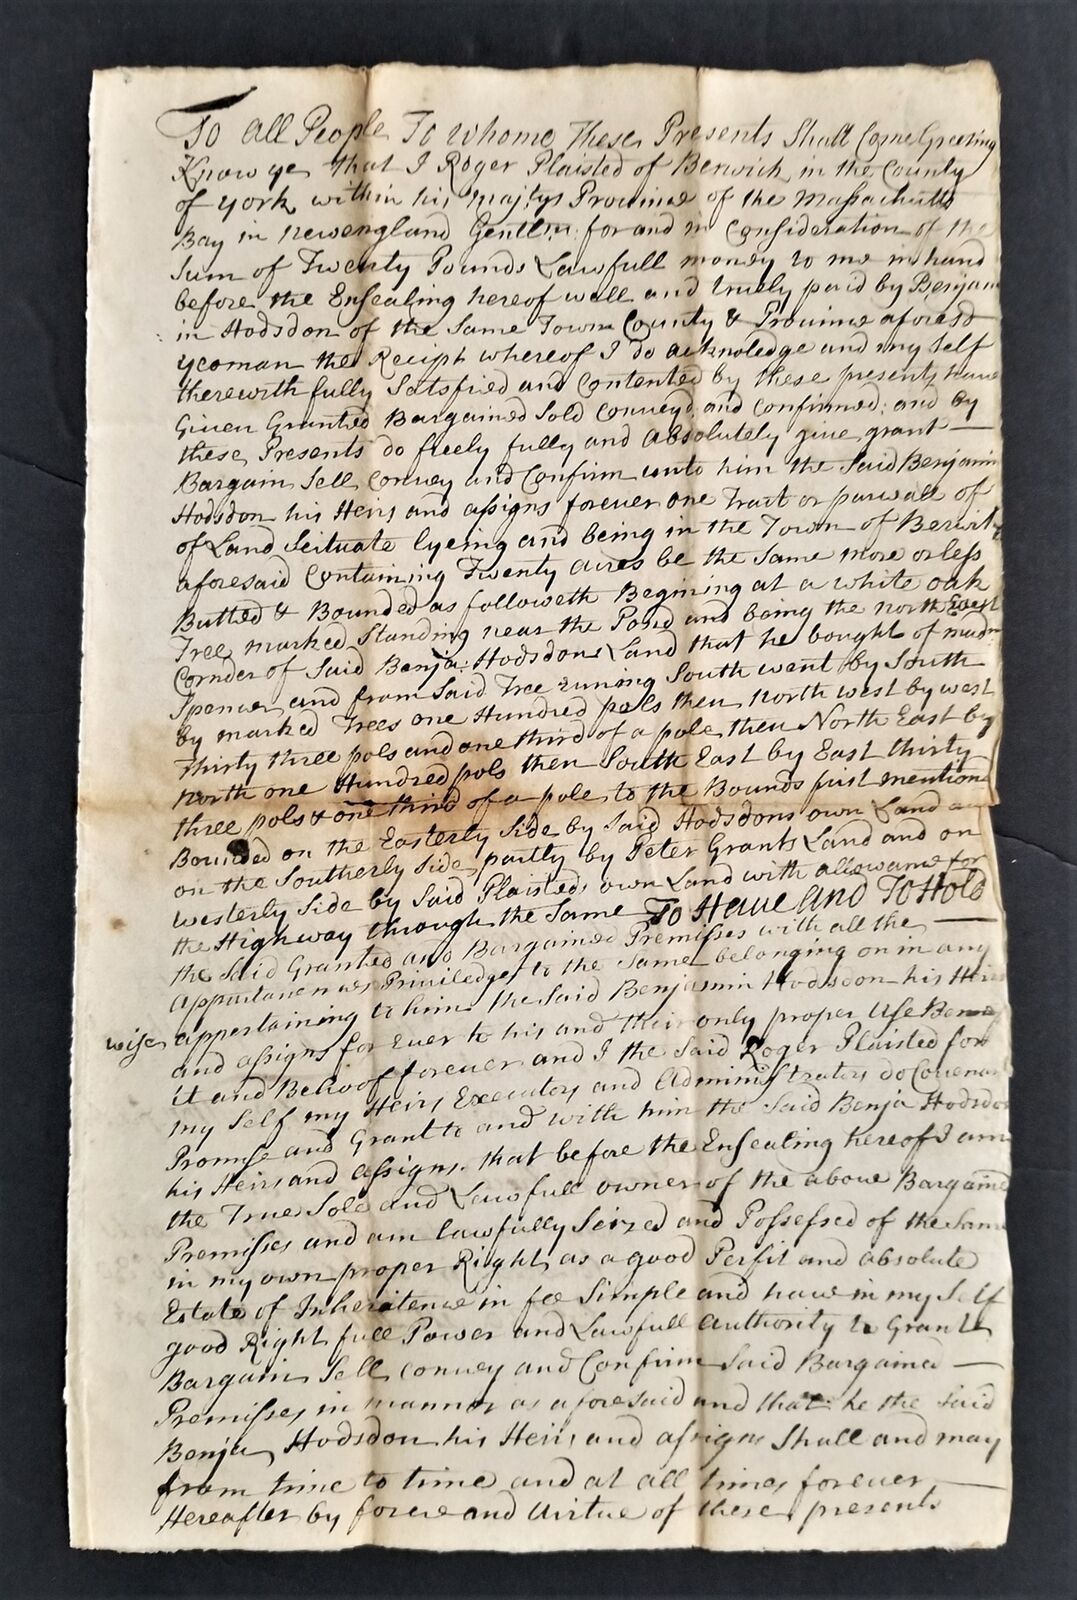 To All People To Whome These Presents Shall Come Greeting
Know ye that I Roger Plaisted of Berwick in the County
of York within his Majtys Province of the Massachutts
Bay in newengland Gentlm: for and in Consideration of the
Sum of Twenty Pounds Lawfull money to me in hand
before the Ensealing hereof well and truely paid by Benjam
in Hodsdon of the Same Town County & Province aforesd
yeoman the Recipt whereof I do acknoledge and my Self
therewith fully Satsfied and Contented by these presents have
Given Granted Bargained Sold Conveyd and confirmed: and by
these Presents do freely fully and absolutely give grant
Bargain Sell Convey and Confirm unto him the Said Benjamin
Hodsdon his Heirs and assigns forever one Tract or parcall of
of Land Scituate lyeing and being in the Town of Berwick
aforesaid Containing Twenty acres be the Same more or less
Butted & Bounded as followeth Begining at a white oak
Tree marked Standing near the Pond and being the north West
Cornder of Said Benja: Hodsdons Land that he bought of madm
Spencer and from Said Tree runing South west by South
by marked Trees one Hundred pols then North west by west
Thirty three pols and one third of a pole then North East by
North one Hundred pols then South East by East thirty
three pols & one third of a pole to the Bounds first mention
Bounded on the Easterly Side by Said Hodsdons own Land an
on the Southerly Side partly by Peter Grants Land and on
westerly Side by Said Plaisteds own Land with allowance for
the Highway through the Same To Have and To Hold
the Said Granted and Bargained Premisses with all the
appurtanences Priviledges to the Same belonging or in any
wise appertaining to him the Said Benjamin Hodsdon his Heirs
and assigns for Ever to his and their only proper Use Benef
it and Behoof forever and I the Said Roger Plaisted for
my Self my Heirs Executors and Administrators do Covenan
Promise and Grant to and with him the Said Benja Hodsdon
his Heirs and assigns that before the Ensealing hereof I am
the True Sole and Lawfull owner of the above Bargained
Premisses and am lawfully Seized and Possessed of the Same
in my own proper Right as a good Perfit and absolute
Estate of Inheritence in fee Simple and have in my Self
good Right full Power and Lawfull authority to Grant
Bargain Sell convey and Confirm Said Bargained
Premisses in manner as aforesaid and that he the Said
Benja Hodsdon his Heirs and assigns Shall and may
from time to time and at all times forever
Hereafter by force and Virtue of these presents